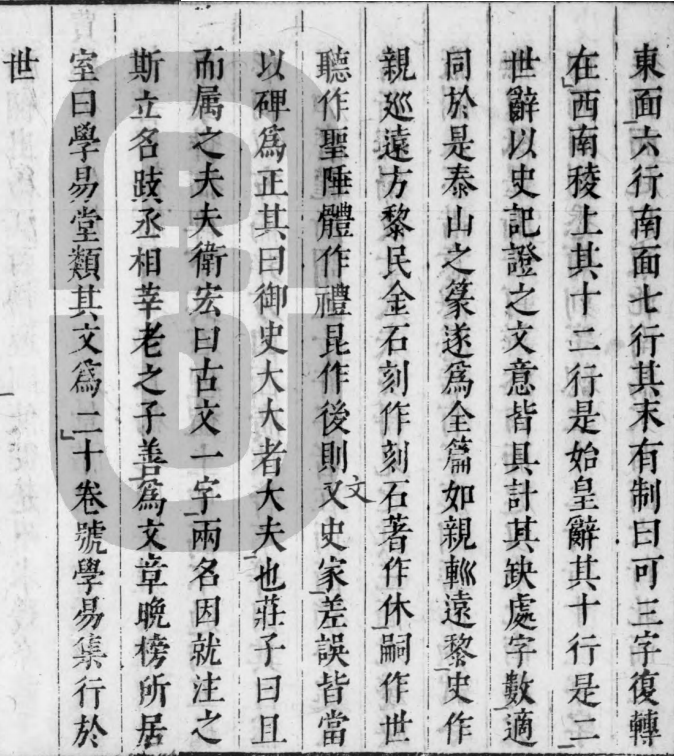 東面六行南面七行其末有制曰可三字復轉
在西南稜上其十二行是始皇辭其十行是二
世辭以史記證之文意皆具計其缺處字數適
同於是泰山之篆遂爲全篇如親輏遠黎史作
親廵遠方黎民金石刻作刻石著作休嗣作世
聽作聖陲體作禮昆作後則又史家差誤皆當
文
以碑爲正其曰御史大大者大夫也莊子曰且
而属之夫夫衛宏曰古文一字兩名因就注之
斯立名跂丞相莘老之子善爲文章晩榜所居
室曰學易堂類其文爲二十卷號學易集行於
世